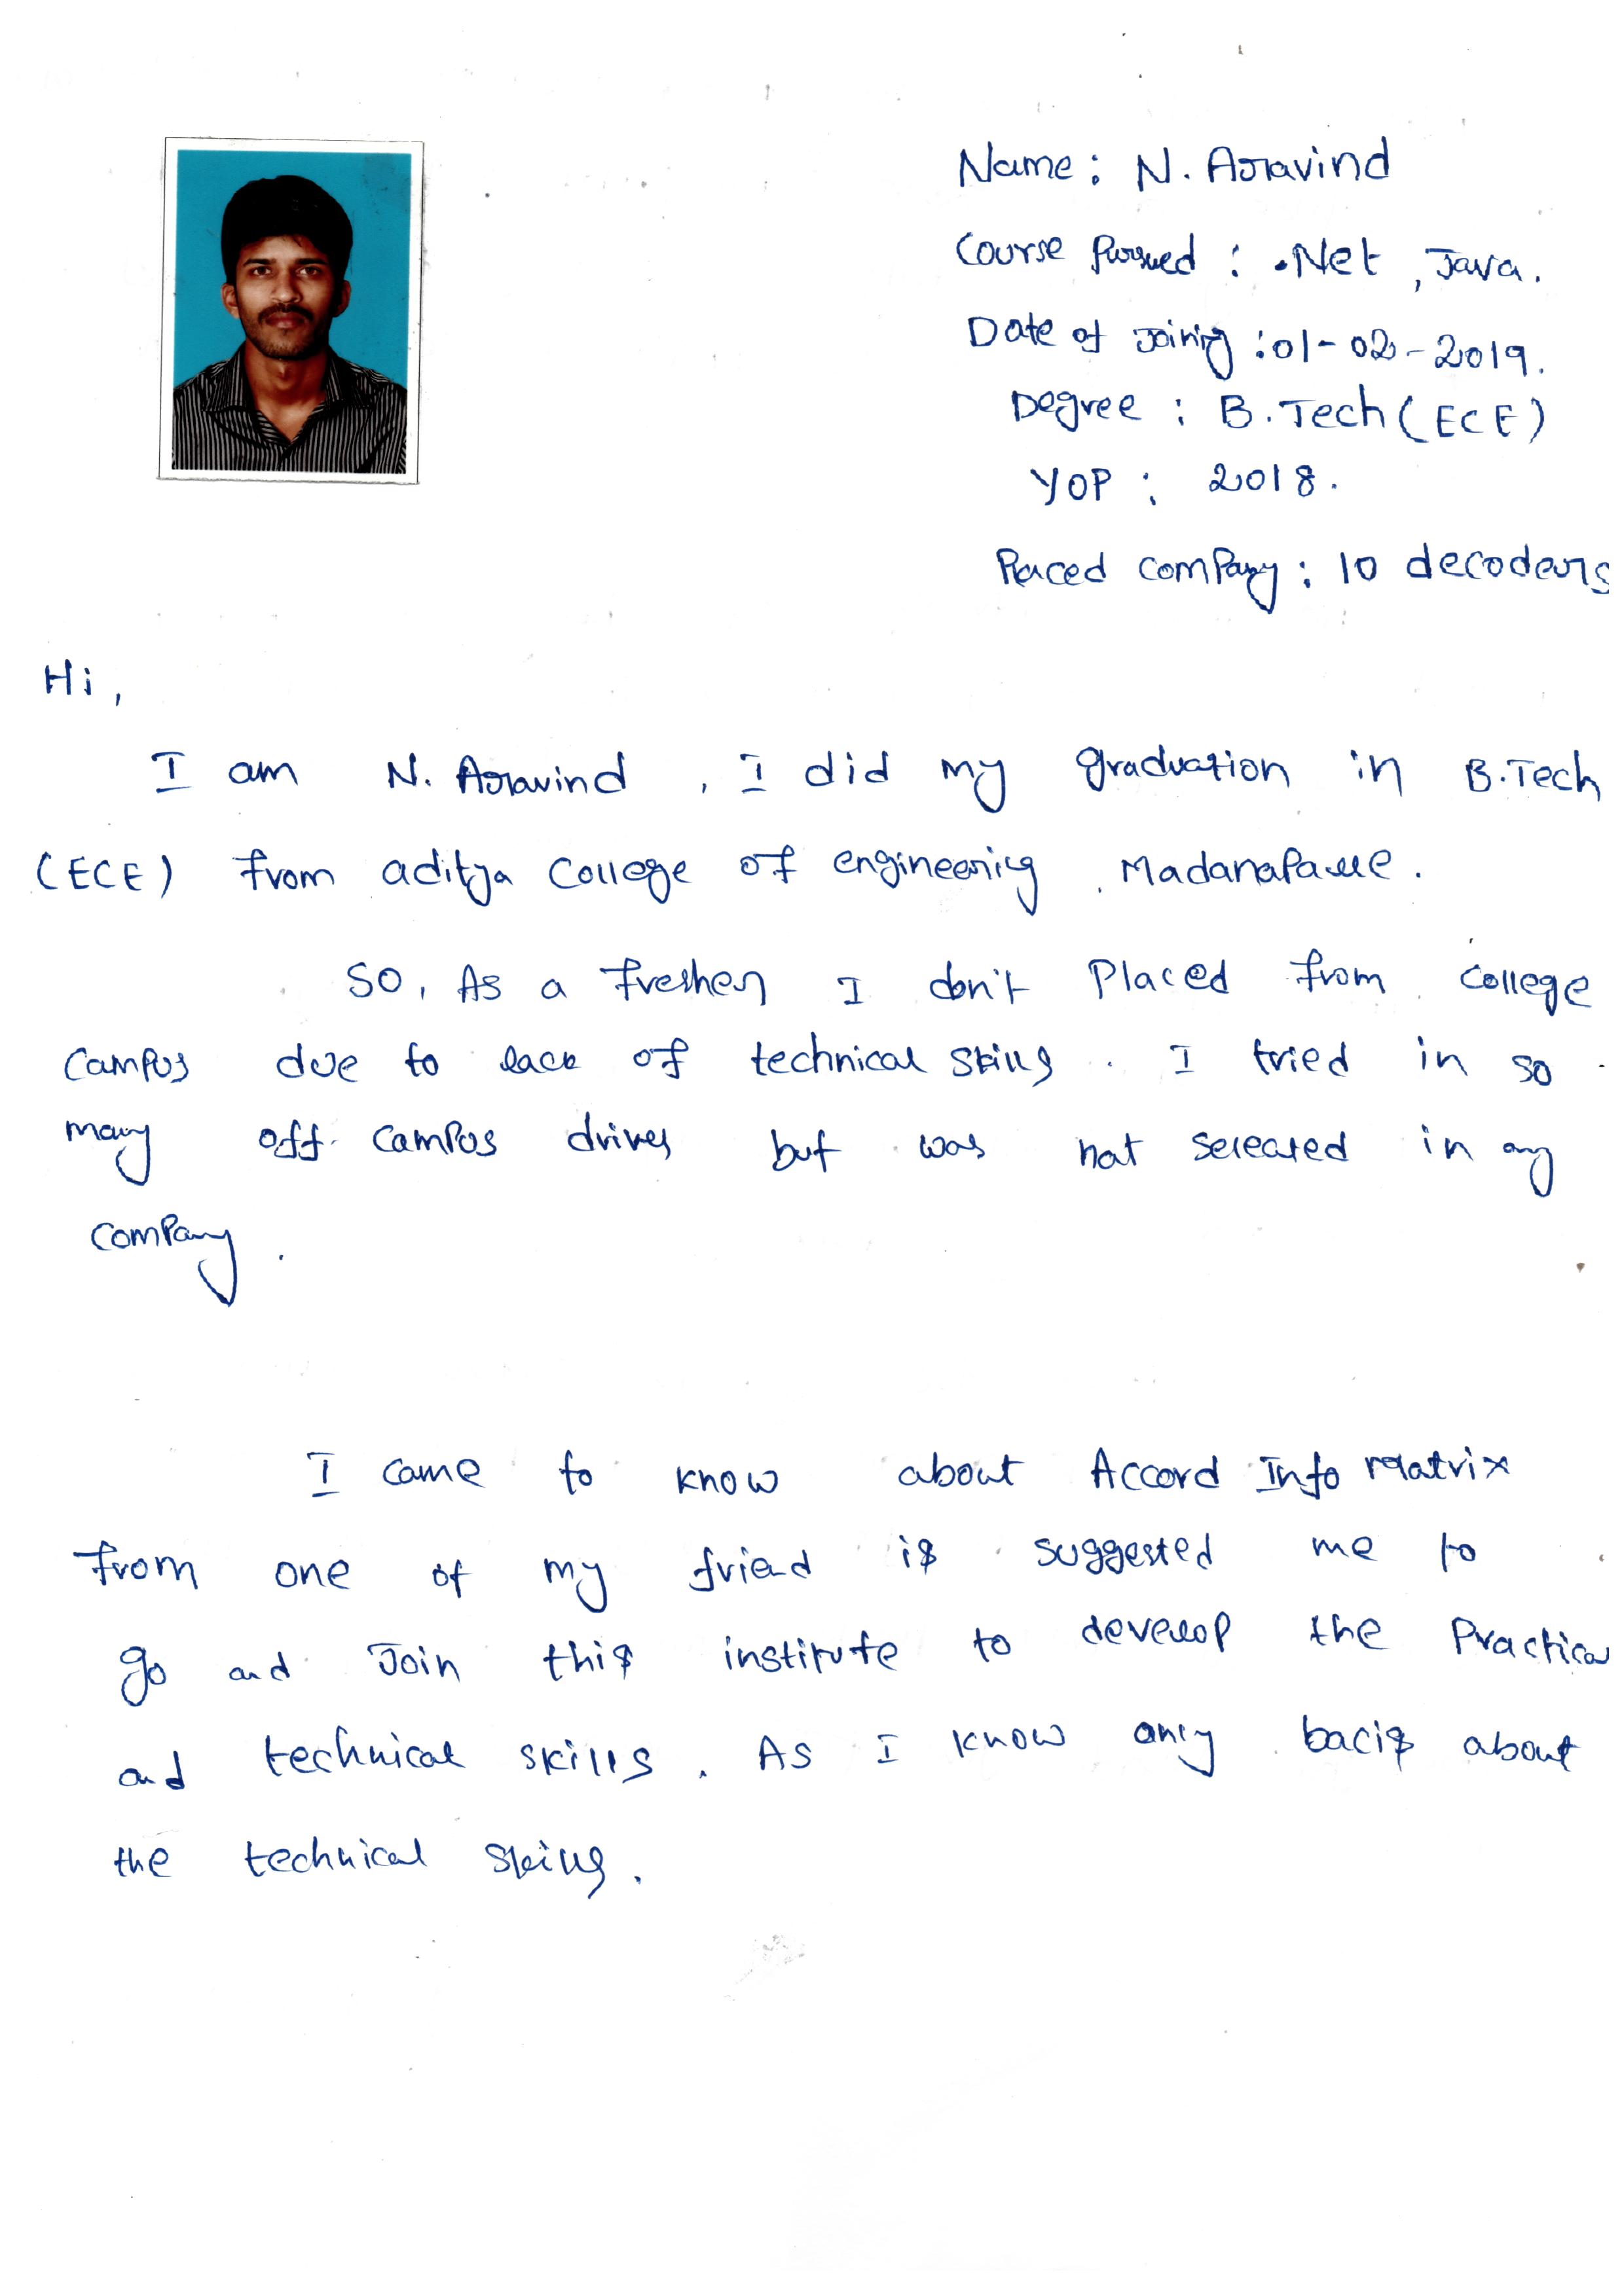 Name: N. Aravind
Course Pursued : .Net , Java.
Date of Joining : 01-02-2019.
Degree : B.Tech (ECE)
YOP : 2018.
Placed company : 10 decoders
Hi,
I am N. Aravind , I did my graduation in B.Tech
(ECE) from aditya College of engineering , Madanapalle.
So, As a fresher I don't Placed from college
Campus due to lack of technical skills . I tried in so
many off campus drives but was not selected in any
company .
I came to know about Accord Info Matrix
from one of my friend is suggested me to
go and Join this institute to develop the Practical
and technical skills . As I know only bacis about
the technical skills .